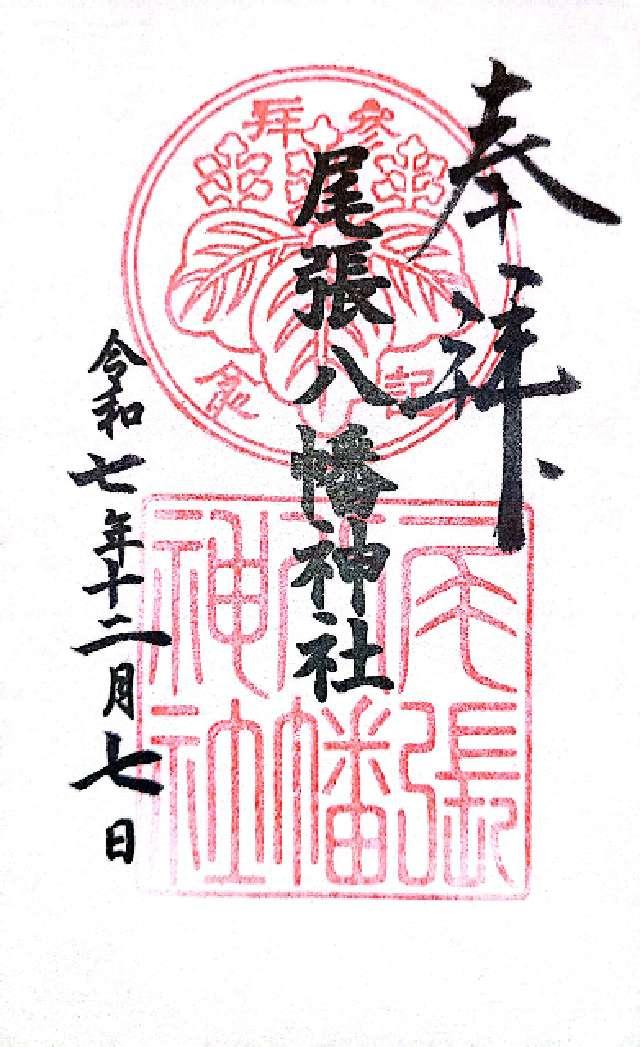 奉拝
尾張八幡神社
令和七年十二月七日
参拝
記念
尾張
八幡
神社